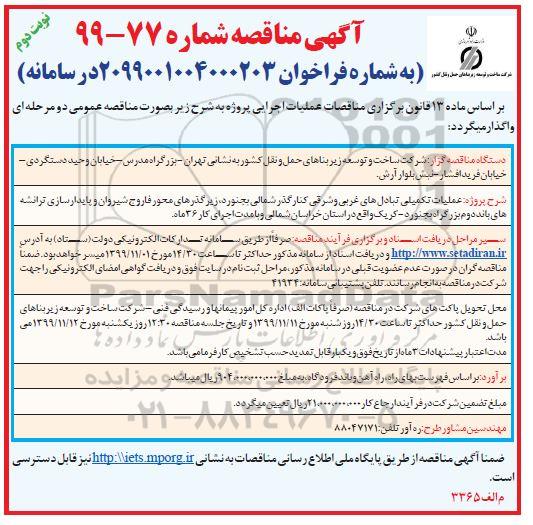 نوبت دوم
آگهی مناقصه شماره ۷۷-۹۹
(به شماره فراخوان ۲۰۹۹۰۰۱۰۰۴۰۰۰۲۰۳ در سامانه)
شرکت ساخت و توسعه زیربناهای حمل و نقل کشور
بر اساس ماده ۱۳ قانون برگزاری مناقصات عملیات اجرایی پروژه به شرح زیر بصورت مناقصه عمومی دو مرحله ای
واگذار میگردد:
دستگاه مناقصه گزار: شرکت ساخت و توسعه زیربناهای حمل و نقل کشور به نشانی تهران - بزرگراه مدرس - خیابان وحید دستگردی -
خیابان فرید افشار - نبش بلوار آرش.
شرح پروژه: عملیات تکمیلی تبادل های غربی و شرقی کنارگذر شمالی بجنورد، زیرگذرهای محور فاروج شیروان و پایدارسازی ترانشه
های باند دوم بزرگراه بجنورد - کریک واقع در استان خراسان شمالی و با مدت اجرای کار ۳۶ ماه.
سیر مراحل دریافت اسناد و برگزاری فرآیند مناقصه: صرفاً از طریق سامانه تدارکات الکترونیکی دولت (ستاد) به آدرس
http://www.setadiran.ir و دریافت اسناد از سامانه مذکور حداکثر تا ساعت ۱۴/۳۰ مورخ ۱۳۹۹/۱۱/۰۱ میسر خواهد بود. ضمنا
مناقصه گران در صورت عدم عضویت قبلی در سامانه مذکور، مراحل ثبت نام در سایت فوق و دریافت گواهی امضای الکترونیکی را جهت
شرکت در مناقصه به انجام رسانند. تلفن پشتیبانی سامانه: ۴۱۹۳۴
محل تحویل پاکت های شرکت در مناقصه (صرفاً پاکات الف) اداره کل امور پیمانها و رسیدگی فنی - شرکت ساخت و توسعه زیربناهای
حمل و نقل کشور حداکثر تا ساعت ۱۴/۳۰ روز شنبه مورخ ۱۳۹۹/۱۱/۱۱ و تاریخ جلسه مناقصه ۱۲:۳۰ روز یکشنبه مورخ ۱۳۹۹/۱۱/۱۲ می
باشد.
مدت اعتبار پیشنهادات ۳ ماه از تاریخ فوق و یکبار قابل تمدید حسب تشخیص کارفرما می باشد.
برآورد: بر اساس فهرست بهای راه، راه آهن و باند فرودگاه، به مبلغ ۹۰۴،۰۰۰،۰۰۰،۰۰۰ ریال میباشد.
مبلغ تضمین شرکت در فرآیند ارجاع کار ۲۱،۰۰۰،۰۰۰،۰۰۰ ریال تعیین میگردد.
مهندسین مشاور طرح: ره آور تلفن: ۸۸۰۴۷۱۷۱
ضمنا آگهی مناقصه از طریق پایگاه ملی اطلاع رسانی مناقصات به نشانی http:\\iets.mporg.ir نیز قابل دسترسی
است.
م الف ۳۳۶۵
ParsNamadData
۰۲۱-۸۸۳۴۹۶۷۰-۵